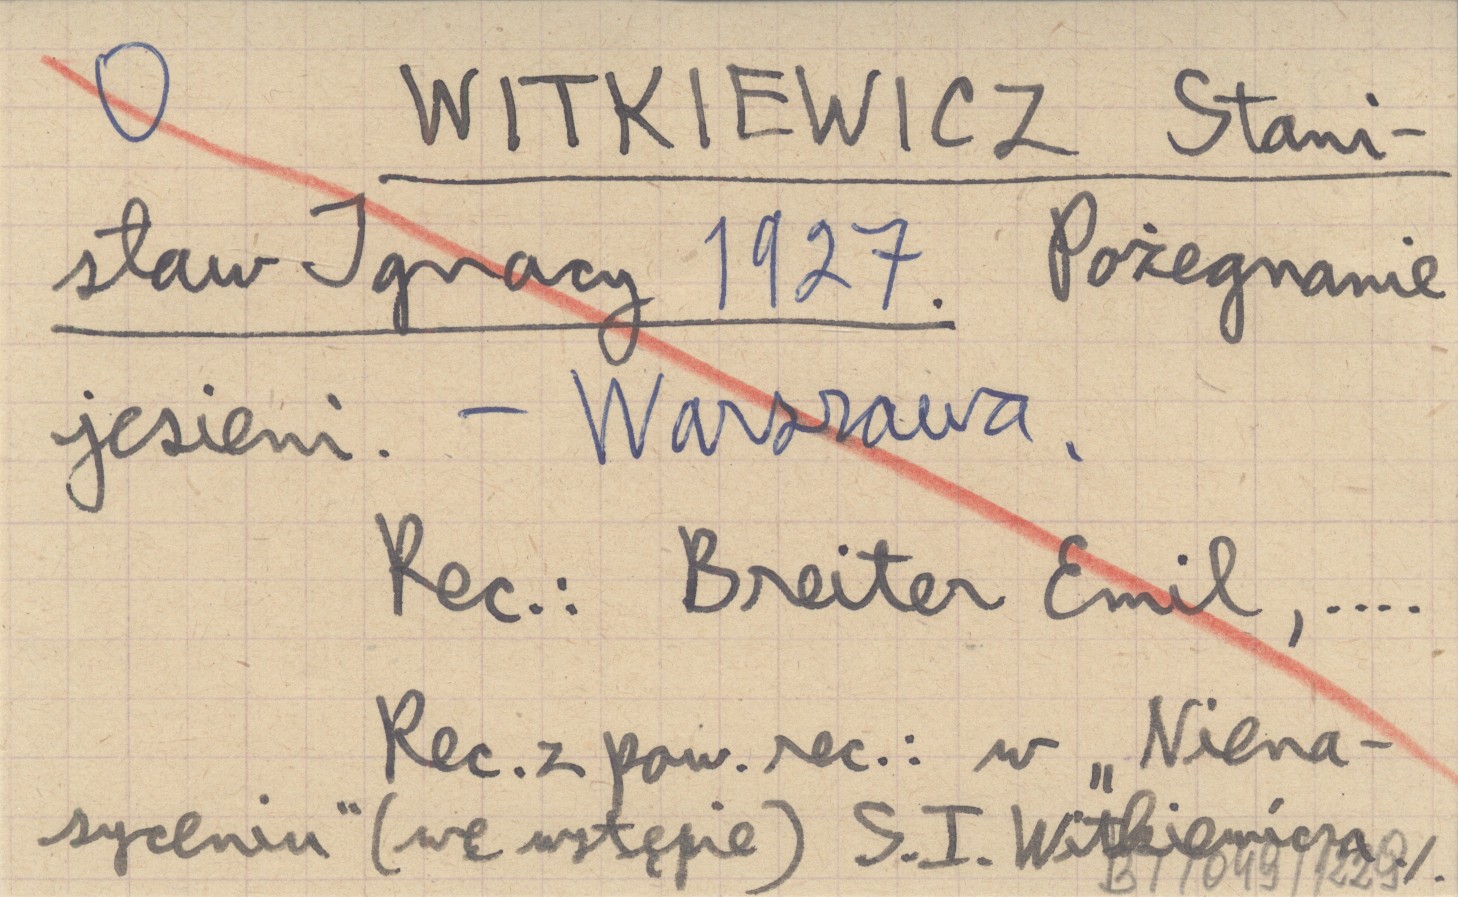 O WITKIEWICZ Stani-
sław Ignacy 1927. Pożegnanie
jesieni. – Warszawa.
Rec.: Breiter Emil, ....
Rec. z pow. rec.: w „Niena-
syceniu" (we wstępie) S.I. Witkiewicza./.
BT/049/1229